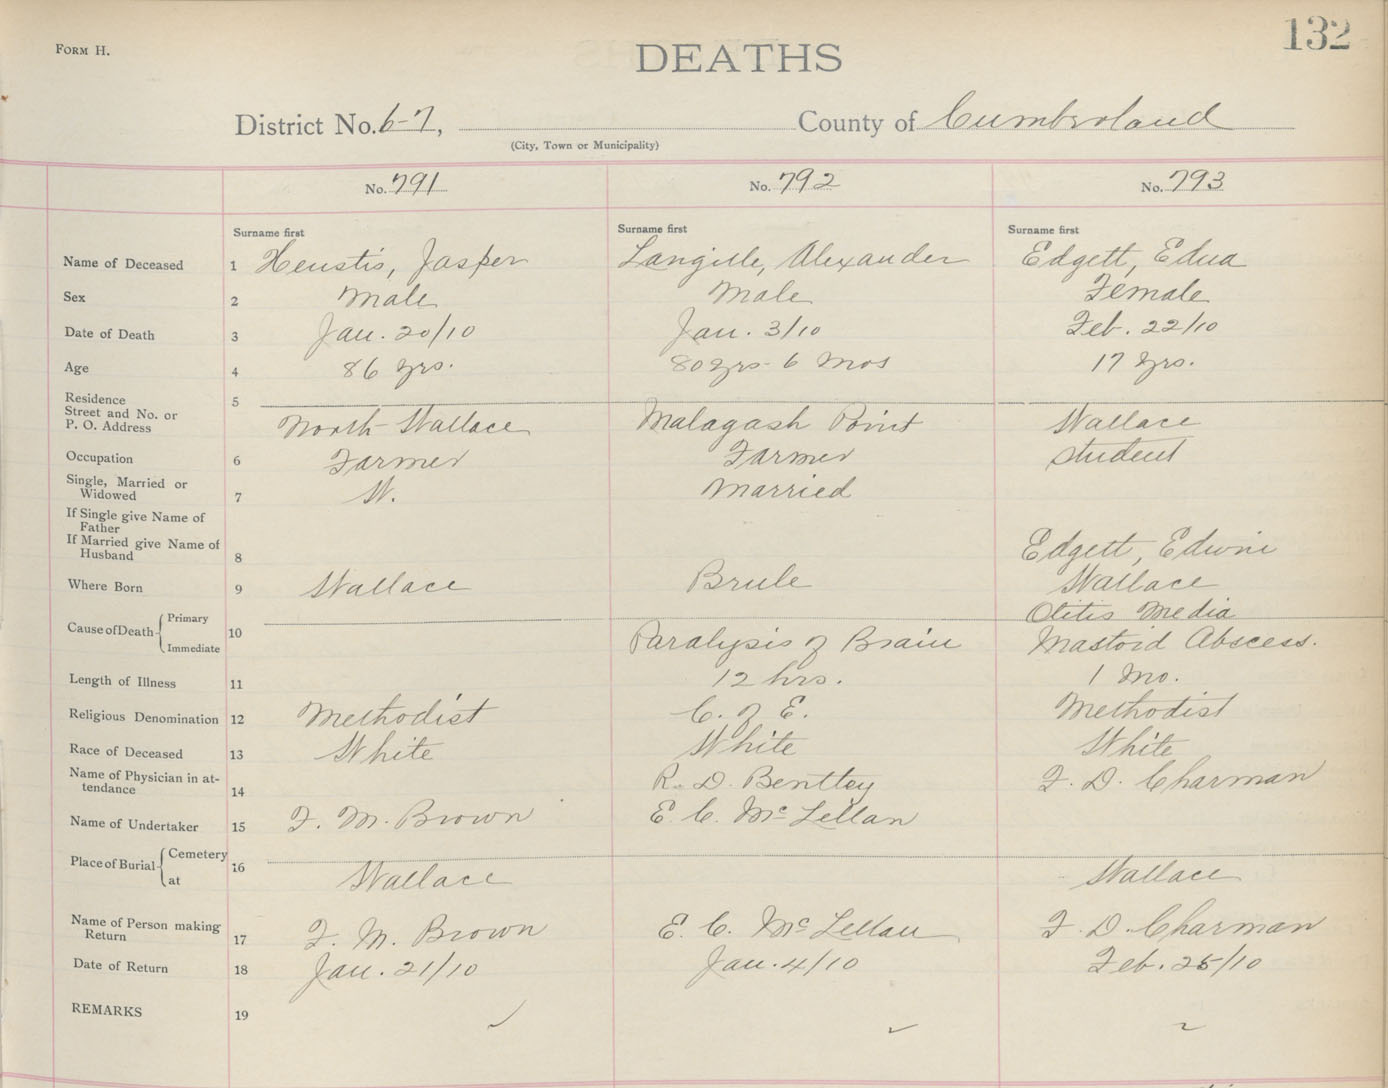 132
FORM H.
DEATHS
District No. 6-7, County of Cumberland
(City, Town or Municipality)
No. 791 No. 792 No. 793
Surname first Surname first Surname first
Name of Deceased 1 Heustis, Jasper Langille, Alexander Edgett, Edna
Sex 2 Male Male Female
Date of Death 3 Jan. 20/10 Jan. 3/10 Feb. 22/10
Age 4 86 yrs. 80 yrs - 6 Mos 17 yrs.
Residence 5
Street and No. or
P. O. Address North Wallace Malagash Point Wallace
Occupation 6 Farmer Farmer Student
Single, Married or
Widowed 7 W. Married
If Single give Name of
Father
If Married give Name of
Husband 8 Edgett, Edwin
Where Born 9 Wallace Brule Wallace
Cause of Death Primary 10 Otitis Media
Immediate Paralysis of Brain Mastoid Abscess.
Length of Illness 11 12 hrs. 1 Mo.
Religious Denomination 12 Methodist C. of E. Methodist
Race of Deceased 13 White White White
Name of Physician in at-
tendance 14 R. D. Bentley F. D. Charman
Name of Undertaker 15 F. M. Brown E. C. McLellan
Place of Burial Cemetery 16
at Wallace Wallace
Name of Person making
Return 17 F. M. Brown E. C. McLellan F. D. Charman
Date of Return 18 Jan. 21/10 Jan. 4/10 Feb. 25/10
REMARKS 19